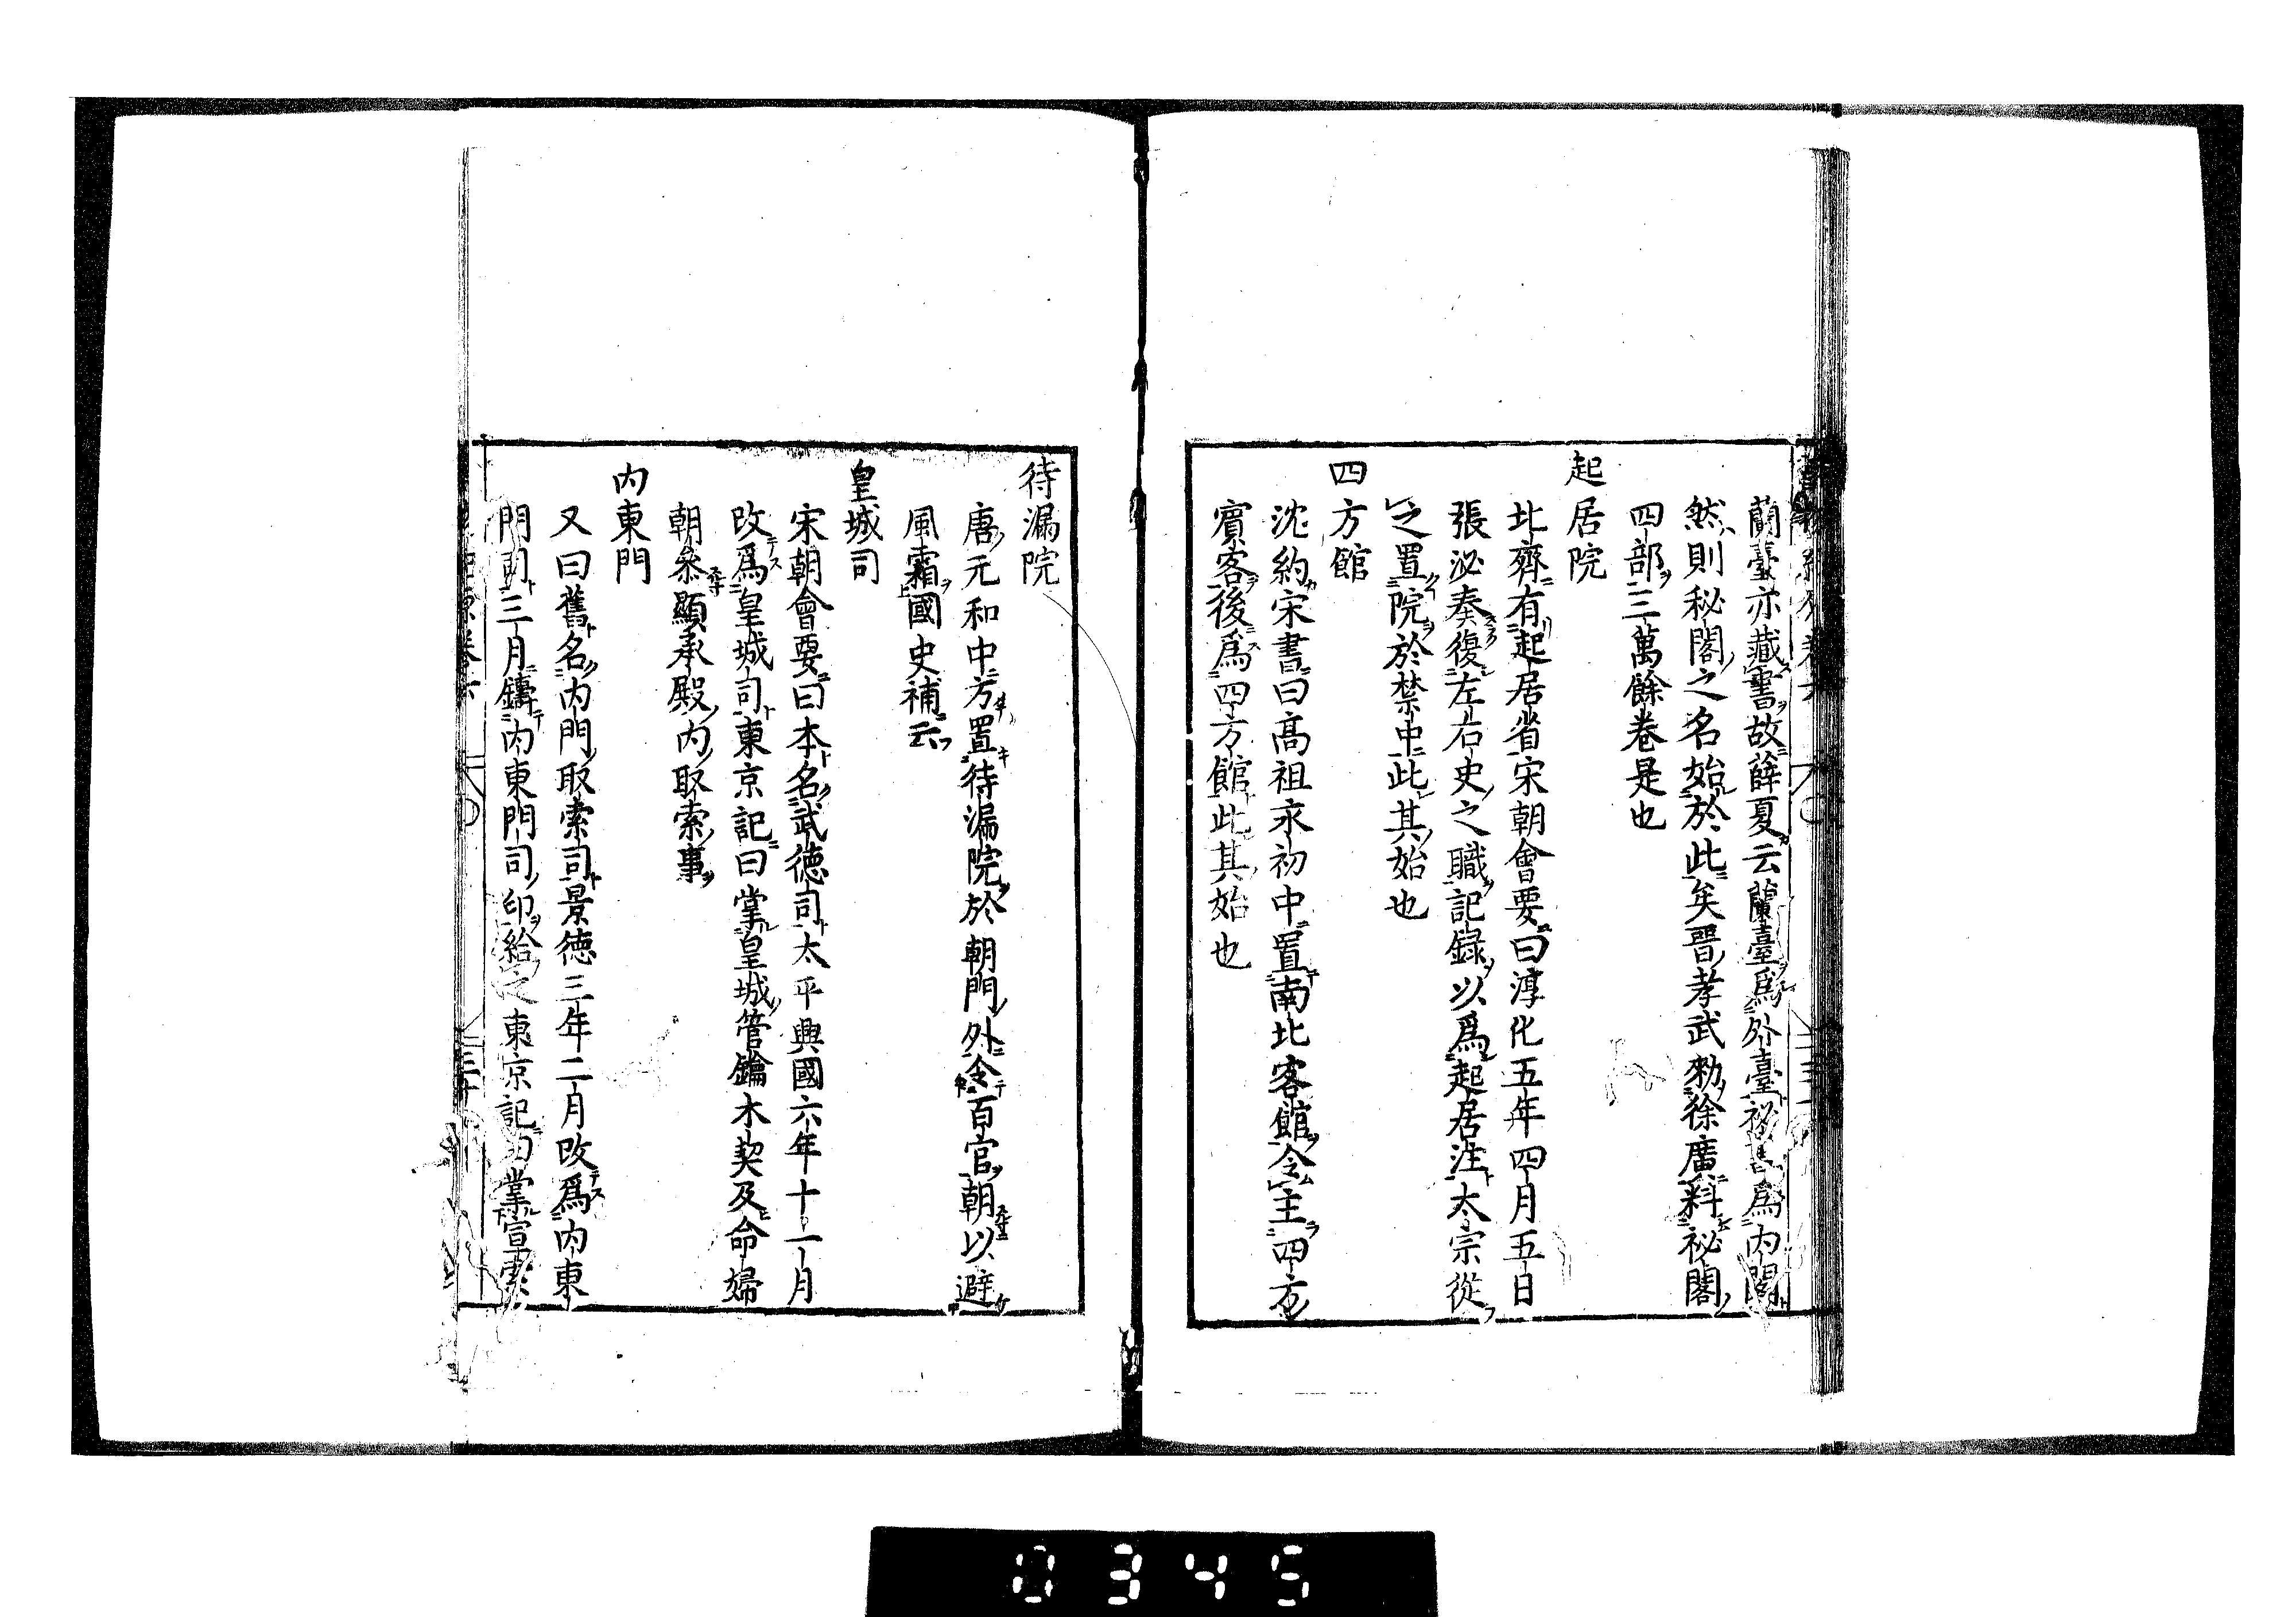 蘭臺亦藏書故薛夏云蘭臺爲外臺祕書爲内閣
然則秘閣之名始於此矣晋孝武勑徐廣料祕閣
四部三萬餘卷是也
起居院
北齊有起居省宋朝會要曰淳化五年四月五日
張泌奏復左右史之職記録以爲起居注太宗從
之置院於禁中此其始也
四方館
沈約宋書曰高祖永初中置南北客館令主四方
賓客後爲四方館此其始也
待漏院
唐元和中方置待漏院於朝門外令百官朝以避
風霜國史補云
皇城司
宋朝會要曰本名武德司太平興國六年十一月
改爲皇城司東京記曰掌皇城管鑰木契及命婦
朝叅顯承殿内取索事
内東門
又曰舊名内門取索司景德三年二月改爲内東
門司三月鑄内東門司印給之東京記曰掌宣索
0345